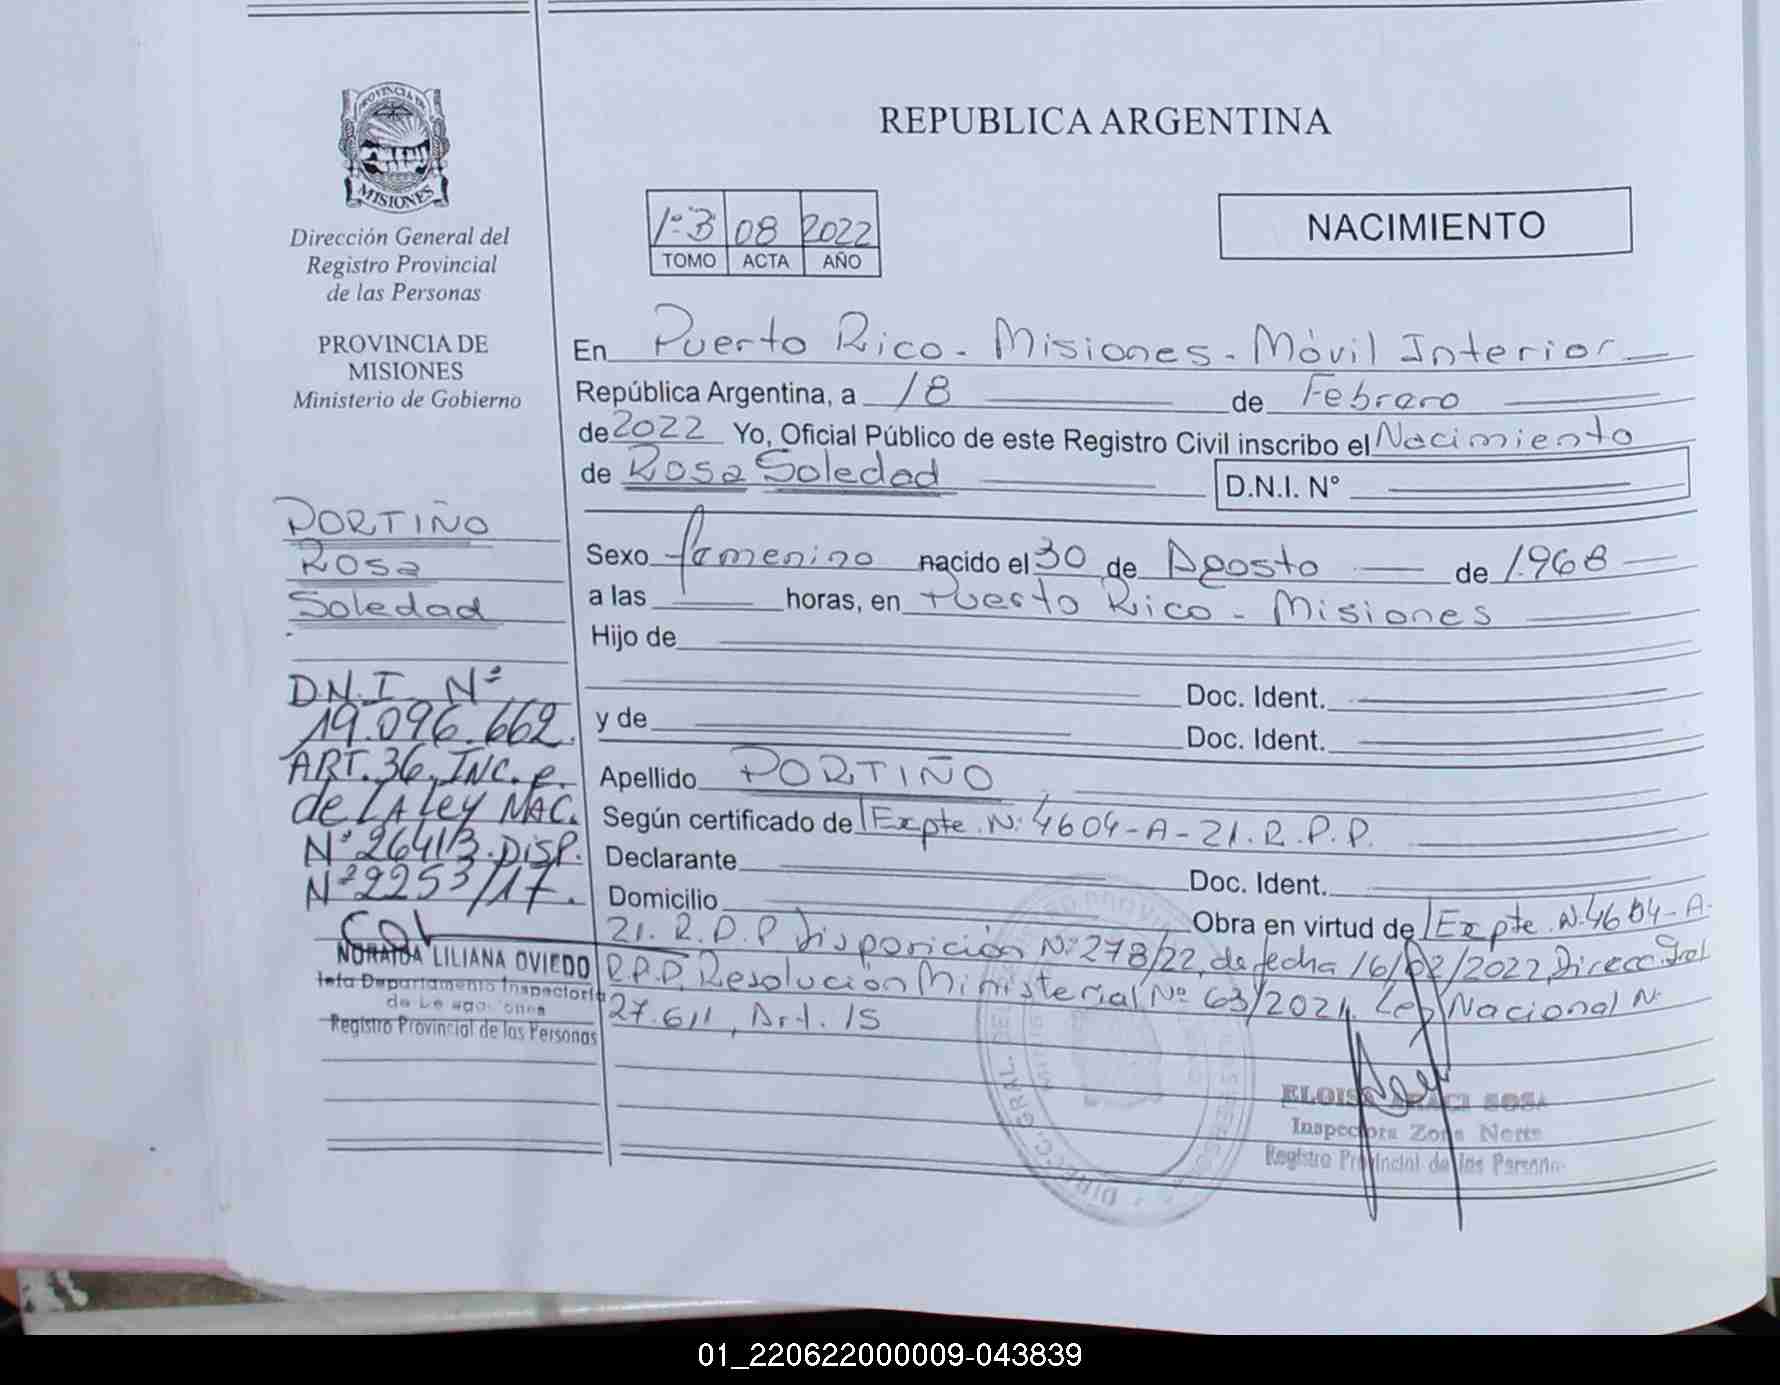 PROVINCIA DE
MISIONES
Dirección General del
Registro Provincial
de las Personas
PROVINCIA DE
MISIONES
Ministerio de Gobierno
PORTIÑO
Rosa
Soledad
D.N.I. Nº
19.096.662.
ART. 36, INC. e.
de LA LEY NAC.
Nº 26413. DISP.
Nº 2253/17.
NORAIDA LILIANA OVIEDO
Jefa Departamento Inspectoría
de Delegaciones
Registro Provincial de las Personas
REPUBLICA ARGENTINA
1º B 08 2022
TOMO ACTA AÑO
NACIMIENTO
En Puerto Rico - Misiones - Móvil Interior
República Argentina, a 18 de Febrero
de 2022 Yo, Oficial Público de este Registro Civil inscribo el Nacimiento
de Rosa Soledad D.N.I. N°
Sexo femenino nacido el 30 de Agosto de 1.968
a las horas, en Puerto Rico - Misiones
Hijo de
Doc. Ident.
y de
Doc. Ident.
Apellido PORTIÑO
Según certificado de Expte. Nº 4604-A-21. R.P.P.
Declarante
Doc. Ident.
Domicilio
Obra en virtud de Expte. Nº 4604-A-
21. R.P.P Disposición Nº 278/22, de fecha 16/02/2022, Direcc. Gral
R.P.P, Resolución Ministerial Nº 63/2021, Ley Nacional Nº
27.611, Art. 15
ELOISA ARACI SOSA
Inspectora Zona Norte
Registro Provincial de las Personas
01_220622000009-043839